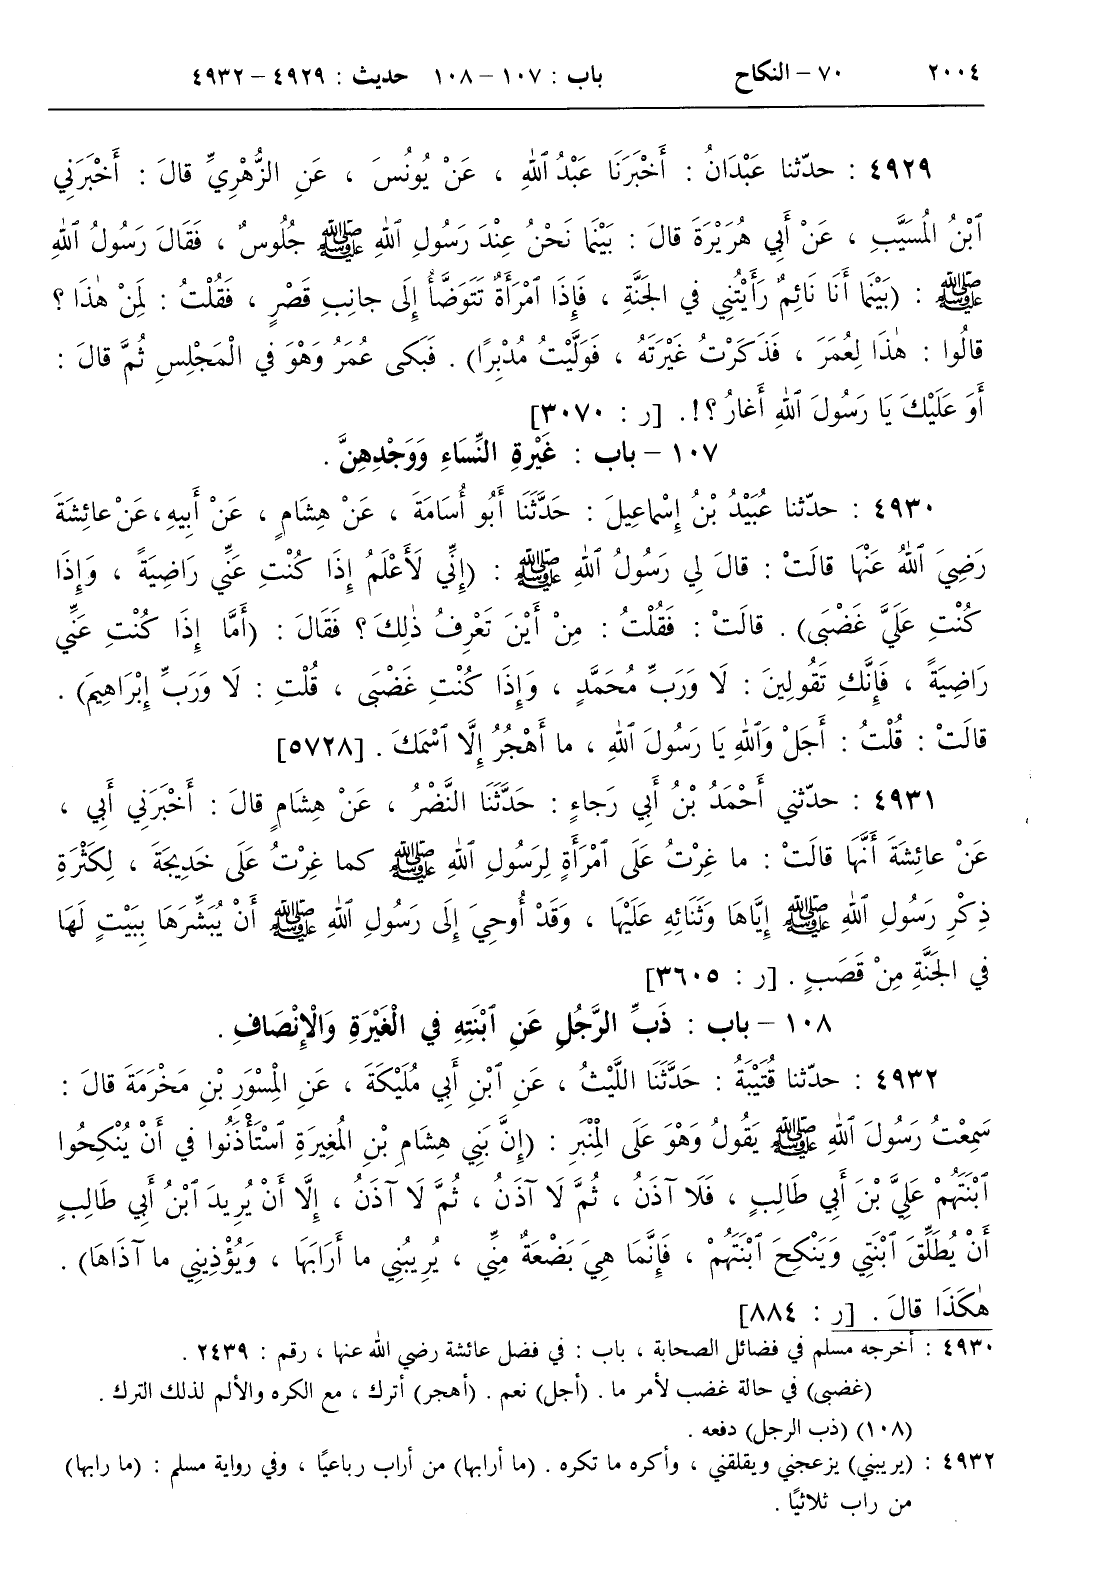 ٢٠٠٤ ٧٠ – النكاح باب : ١٠٧ – ١٠٨ حديث : ٤٩٢٩ – ٤٩٣٢
٤٩٢٩ : حدّثنا عَبْدَانُ : أَخْبَرَنَا عَبْدُ ٱللهِ ، عَنْ يُونُسَ ، عَنِ الزُّهْرِيِّ قالَ : أَخْبَرَنِي
ٱبْنُ المُسَيَّبِ ، عَنْ أَبِي هُرَيْرَةَ قالَ : بَيْنَمَا نَحْنُ عِنْدَ رَسُولِ ٱللهِ ﷺ جُلُوسٌ ، فَقَالَ رَسُولُ ٱللهِ
ﷺ : (بَيْنَمَا أَنَا نَائِمٌ رَأَيْتُنِي في الجَنَّةِ ، فَإِذَا ٱمْرَأَةٌ تَتَوَضَّأُ إِلَى جانِبِ قَصْرٍ ، فَقُلْتُ : لِمَنْ هٰذَا ؟
قالُوا : هٰذَا لِعُمَرَ ، فَذَكَرْتُ غَيْرَتَهُ ، فَوَلَّيْتُ مُدْبِرًا) . فَبَكى عُمَرُ وَهْوَ في الْمَجْلِسِ ثُمَّ قالَ :
أَوَ عَلَيْكَ يَا رَسُولَ ٱللهِ أَغارُ ؟!. [ر : ٣٠٧٠]
١٠٧ – باب : غَيْرَةِ النِّسَاءِ وَوَجْدِهِنَّ .
٤٩٣٠ : حدّثنا عُبَيْدُ بْنُ إِسْماعِيلَ : حَدَّثَنَا أَبُو أُسَامَةَ ، عَنْ هِشَامٍ ، عَنْ أَبِيهِ، عَنْ عائِشَةَ
رَضِيَ ٱللهُ عَنْهَا قالَتْ : قالَ لِي رَسُولُ ٱللهِ ﷺ : (إِنِّي لَأَعْلَمُ إِذَا كُنْتِ عَنِّي رَاضِيَةً ، وَإِذَا
كُنْتِ عَلَيَّ غَضْبَى) . قالَتْ : فَقُلْتُ : مِنْ أَيْنَ تَعْرِفُ ذٰلِكَ ؟ فَقَالَ : (أَمَّا إِذَا كُنْتِ عَنِّي
رَاضِيَةً ، فَإِنَّكِ تَقُولِينَ : لَا وَرَبِّ مُحَمَّدٍ ، وَإِذَا كُنْتِ غَضْبَى ، قُلْتِ : لَا وَرَبِّ إِبْرَاهِيمَ) .
قالَتْ : قُلْتُ : أَجَلْ وَٱللهِ يَا رَسُولَ ٱللهِ ، ما أَهْجُرُ إِلَّا ٱسْمَكَ . [٥٧٢٨]
٤٩٣١ : حدّثني أَحْمَدُ بْنُ أَبِي رَجاءٍ : حَدَّثَنَا النَّضْرُ ، عَنْ هِشَامٍ قالَ : أَخْبَرَنِي أَبِي ،
عَنْ عائِشَةَ أَنَّهَا قالَتْ : ما غِرْتُ عَلَى ٱمْرَأَةٍ لِرَسُولِ ٱللهِ ﷺ كما غِرْتُ عَلَى خَدِيجَةَ ، لِكَثْرَةِ
ذِكْرِ رَسُولِ ٱللهِ ﷺ إِيَّاهَا وَثَنَائِهِ عَلَيْهَا ، وَقَدْ أُوحِيَ إِلَى رَسُولِ ٱللهِ ﷺ أَنْ يُبَشِّرَهَا بِبَيْتٍ لَهَا
في الجَنَّةِ مِنْ قَصَبٍ . [ر : ٣٦٠٥]
١٠٨ – باب : ذَبِّ الرَّجُلِ عَنِ ٱبْنَتِهِ في الْغَيْرَةِ وَالْإِنْصَافِ .
٤٩٣٢ : حدّثنا قُتَيْبَةُ : حَدَّثَنَا اللَّيْثُ ، عَنِ ٱبْنِ أَبِي مُلَيْكَةَ ، عَنِ الْمِسْوَرِ بْنِ مَخْرَمَةَ قالَ :
سَمِعْتُ رَسُولَ ٱللهِ ﷺ يَقُولُ وَهْوَ عَلَى الْمِنْبَرِ : (إِنَّ بَنِي هِشَامِ بْنِ المُغِيرَةِ ٱسْتَأْذَنُوا في أَنْ يُنْكِحُوا
ٱبْنَتَهُمْ عَلِيَّ بْنَ أَبِي طَالِبٍ ، فَلَا آذَنُ ، ثُمَّ لَا آذَنُ ، ثُمَّ لَا آذَنُ ، إِلَّا أَنْ يُرِيدَ ٱبْنُ أَبِي طَالِبٍ
أَنْ يُطَلِّقَ ٱبْنَتِي وَيَنْكِحَ ٱبْنَتَهُمْ ، فَإِنَّمَا هِيَ بَضْعَةٌ مِنِّي ، يُرِيبُنِي ما أَرَابَهَا ، وَيُؤْذِينِي ما آذَاهَا) .
هٰكَذَا قالَ . [ر : ٨٨٤]
٤٩٣٠ : أخرجه مسلم في فضائل الصحابة ، باب : في فضل عائشة رضي الله عنها ، رقم : ٢٤٣٩ .
(غضبى) في حالة غضب لأمر ما . (أجل) نعم . (أهجر) أترك ، مع الكره والألم لذلك الترك .
(١٠٨) (ذب الرجل) دفعه .
٤٩٣٢ : (يريبني) يزعجني ويقلقني ، وأكره ما تكره . (ما أرابها) من أراب رباعيًا ، وفي رواية مسلم : (ما رابها)
من راب ثلاثيًا .